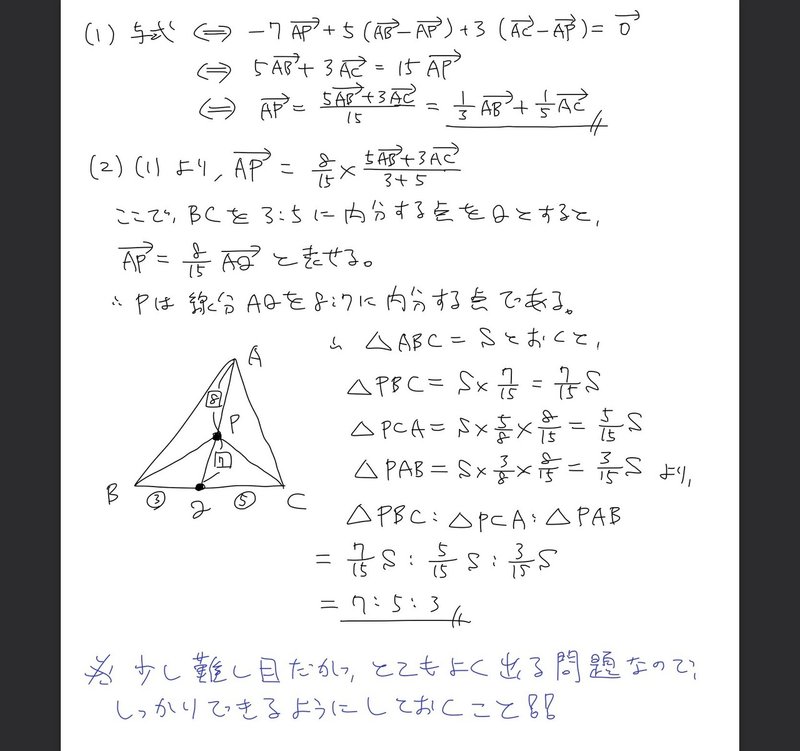 (1) 与式 ⇔ -7AP→+5(AB→-AP→)+3(AC→-AP→)=0→
⇔ 5AB→+3AC→=15AP→
⇔ AP→=(5AB→+3AC→)/15=1/3AB→+1/5AC→
(2) (1)より, AP→=8/15×(5AB→+3AC→)/(3+5)
ここで, BCを3:5に内分する点をQとすると,
AP→=8/15AQ→と表せる。
∴Pは線分AQを8:7に内分する点である。
△ABC=Sとおくと,
△PBC=S×7/15=7/15S
△PCA=S×5/8×8/15=5/15S
△PAB=S×3/8×8/15=3/15S より,
△PBC:△PCA:△PAB
=7/15S:5/15S:3/15S
=7:5:3
A
8
P
7
B ③ Q ⑤ C
※少し難し目だが, とてもよく出る問題なので,
しっかりできるようにしておくこと!!